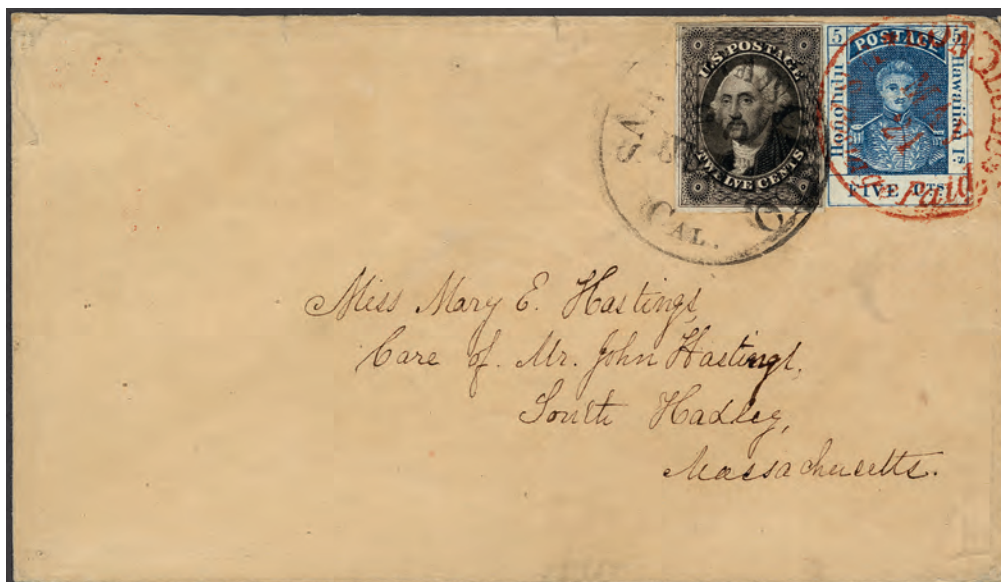 U.S. POSTAGE
TWELVE CENTS
5 POSTAGE 5
Honolulu
Hawaiian Is.
FIVE Cts.
Paid
SAN
CAL.
Miss Mary E. Hastings,
Care of. Mr. John Hastings,
South Hadley,
Massachusetts.